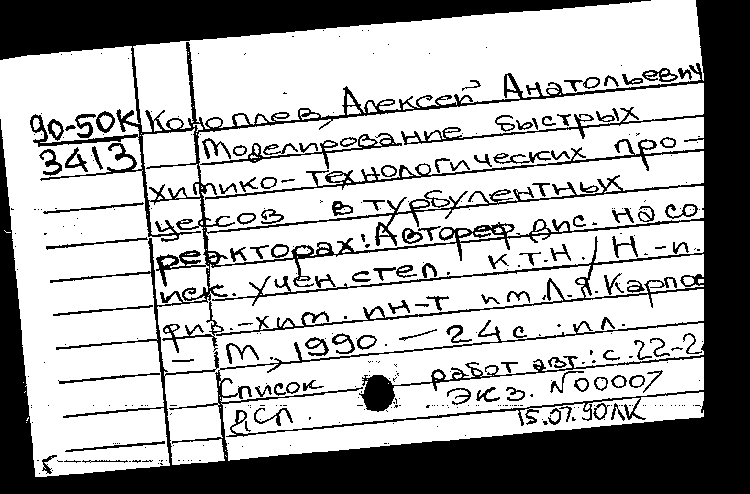 90-50К Коноплев, Алексей Анатольевич
3413 Моделирование быстрых
химико-технологических про-
цессов в турбулентных
реакторах: Автореф. дис. на со
иск. учен. степ. к.т.н. / Н.-и.
физ.-хим. ин-т им. Л.Я. Карпов
— М., 1990. — 24 с. : ил.
Список работ авт.: с. 22-2
ДСП. экз. N 00007
15.07.90 ЛК